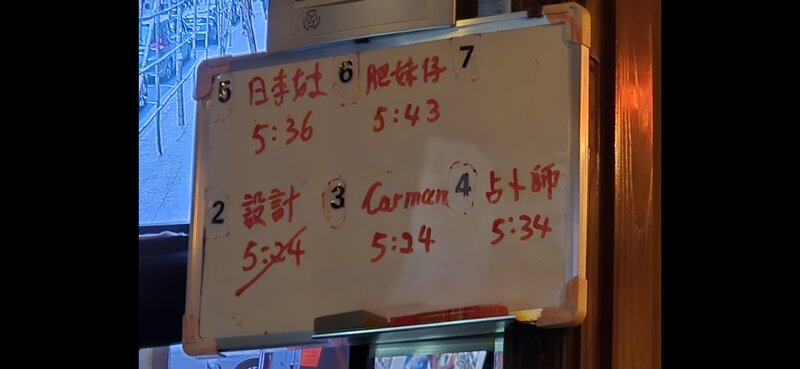 5 日本女士
5:36
6 肥妹仔
5:43
7
2 設計
5:24
3 Carman
5:24
4 占卜師
5:34